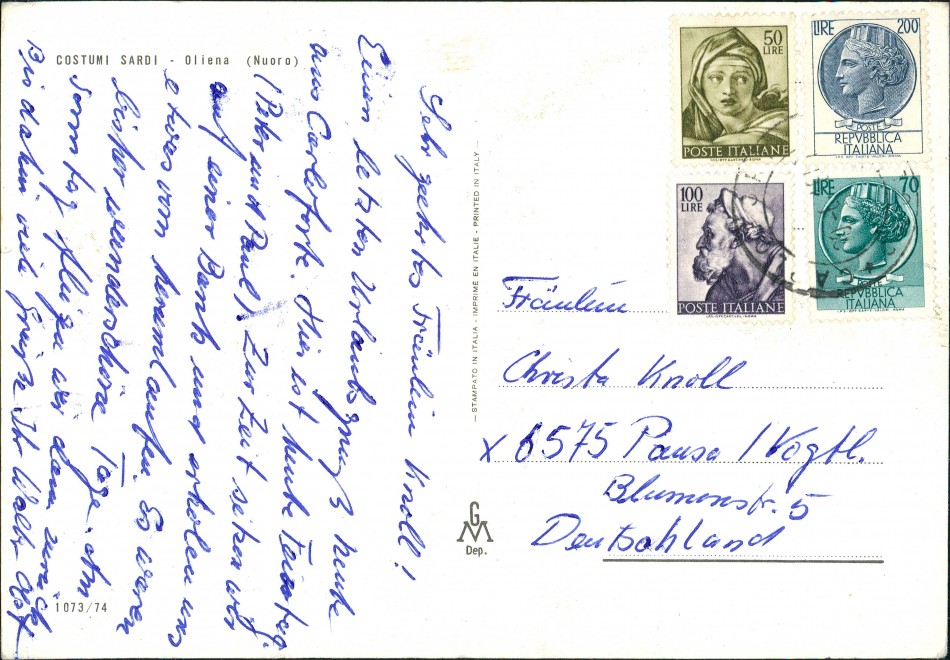 COSTUMI SARDI - Oliena (Nuoro)
Sehr geehrtes Fräulein Knoll!
Einen letzten Urlaubsgruß heute
aus Carloforte. Hier ist heute Feiertag
(Peter und Paul). Zur Zeit sitzen wir
auf einer Bank und erholen uns
etwas vom herumlaufen. Es waren
bisher wunderschöne Tage. Am
Sonntag fliegen wir dann zurück
Bis dahin viele Grüße Ihr
1073/74
— STAMPATO IN ITALIA - IMPRIMÉ EN ITALIE - PRINTED IN ITALY —
G
M
Dep.
50
LIRE
POSTE ITALIANE
LIRE 200
POSTE
REPVBBLICA
ITALIANA
100
LIRE
POSTE ITALIANE
LIRE 70
POSTE
REPVBBLICA
ITALIANA
Fräulein
Christa Knoll
x 6575 Pausa / Vogtl.
Blumenstr. 5
Deutschland